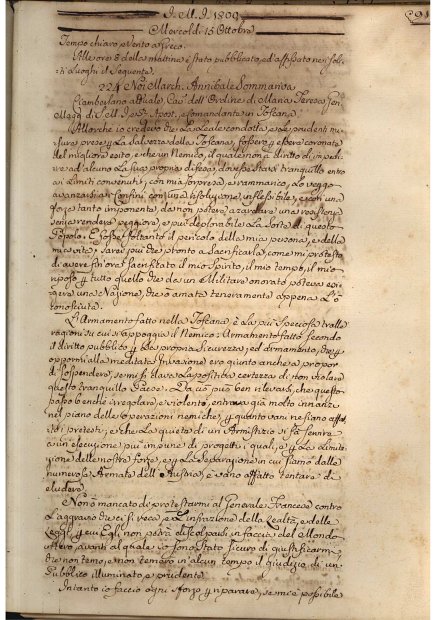 I. M. I. 1800
Mercoldì 15 Ottobre
Tempo chiaro, e Vento a Greco.
Alle ore 8 della mattina è stato pubblicato, ed affissato nei soli-
ti Luoghi il Seguente.
224 Noi March. Annibale Sommariva
Ciamberlano Attuale, Cav. dell'Ordine di Maria Teresa, Gen.
Magg. di S. M. I. e R. Apost. e Comandante in Toscana.
Allorchè io credevo che la Leale condotta, e le prudenti mi-
sure prese la Salvezza della Toscana, fossero essere coronate
del migliore esito, e che un Nemico, il quale non à diritto di impedi-
re ad alcuno la sua propria difesa, dovesse starsi tranquillo entro
ai Limiti convenuti; con mia sorpresa, e rammarico, Lo veggo
avanzarsi ai Confini con una risoluzione inflessibile, e con una
forza tanto imponente, da non potere azzardare una reazione
senza rendere peggiore, e più deplorabile la Sorte di questo
Popolo. E fosse soltanto il pericolo della mia persona, e della
mia vita, sarei più che pronto a Sacrificarla, come mi protesto
di avere fin'ora Sacrificato il mio Spirito, il mio tempo, il mio
riposo tutto quello che da un Militare onorato poteva esi-
gere una Nazione, che o amata teneramente appena L'ò
conosciuta.
L'Armamento fatto nella Toscana è la più Speciosa tralle
ragioni su cui s'appoggia il Nemico: Armamento fatto secondo
il diritto pubblico la propria Sicurezza; ed armamento, che
oppormi alla meditata Invasione ero giunto anche a propor
di Sospendere, se mi si dava la positiva certezza di non violare
questo tranquillo Paese. Da ciò può ben rilevarsi, che questo
passo benchè irregolare, e violento, entrava già molto innanzi
nel piano delle operazioni nemiche, quanto vani ne siano affat-
to i pretesti; e che La quiete di un Armistizio si fà servire
a un'esecuzione più impune di progetti, i quali, La Limita-
zione delle nostre forze, e La Separazione in cui siamo dalla
numerosa Armata dell'Austria, è vano affatto tentare di
eludere.
Non ò mancato di protestarmi al Generale Francese contro
l'aggravio che ci si reca, e L'infrazione della Lealtà, e delle
Leggi, cui Egli non potrà discolparsi in faccia del Mondo
intero, avanti al quale io sono stato sicuro di giustificarmi,
che non temo, e non temerò in alcun tempo il giudizio di un
Pubblico illuminato, e prudente.
Intanto io faccio ogni sforzo riparare, se mi è possibile